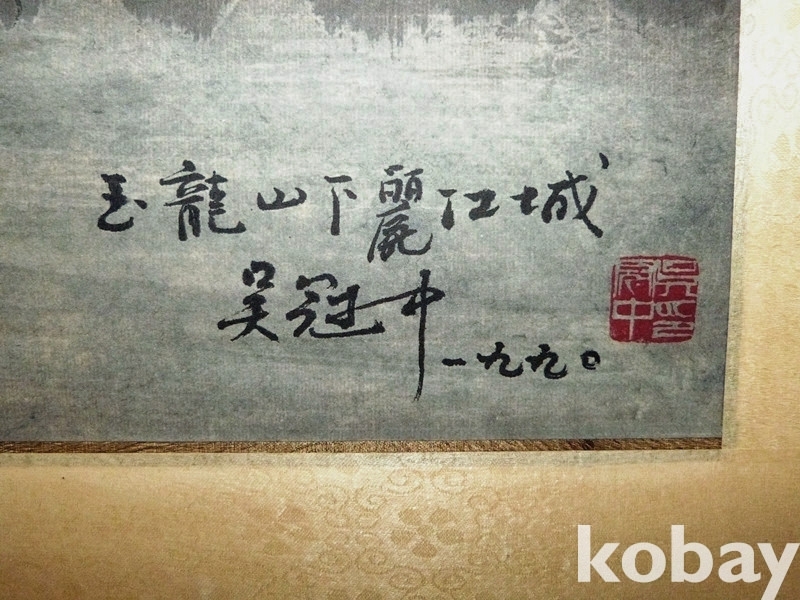 玉龍山下麗江城
吳冠中
一九九〇
吳冠中印
kobay